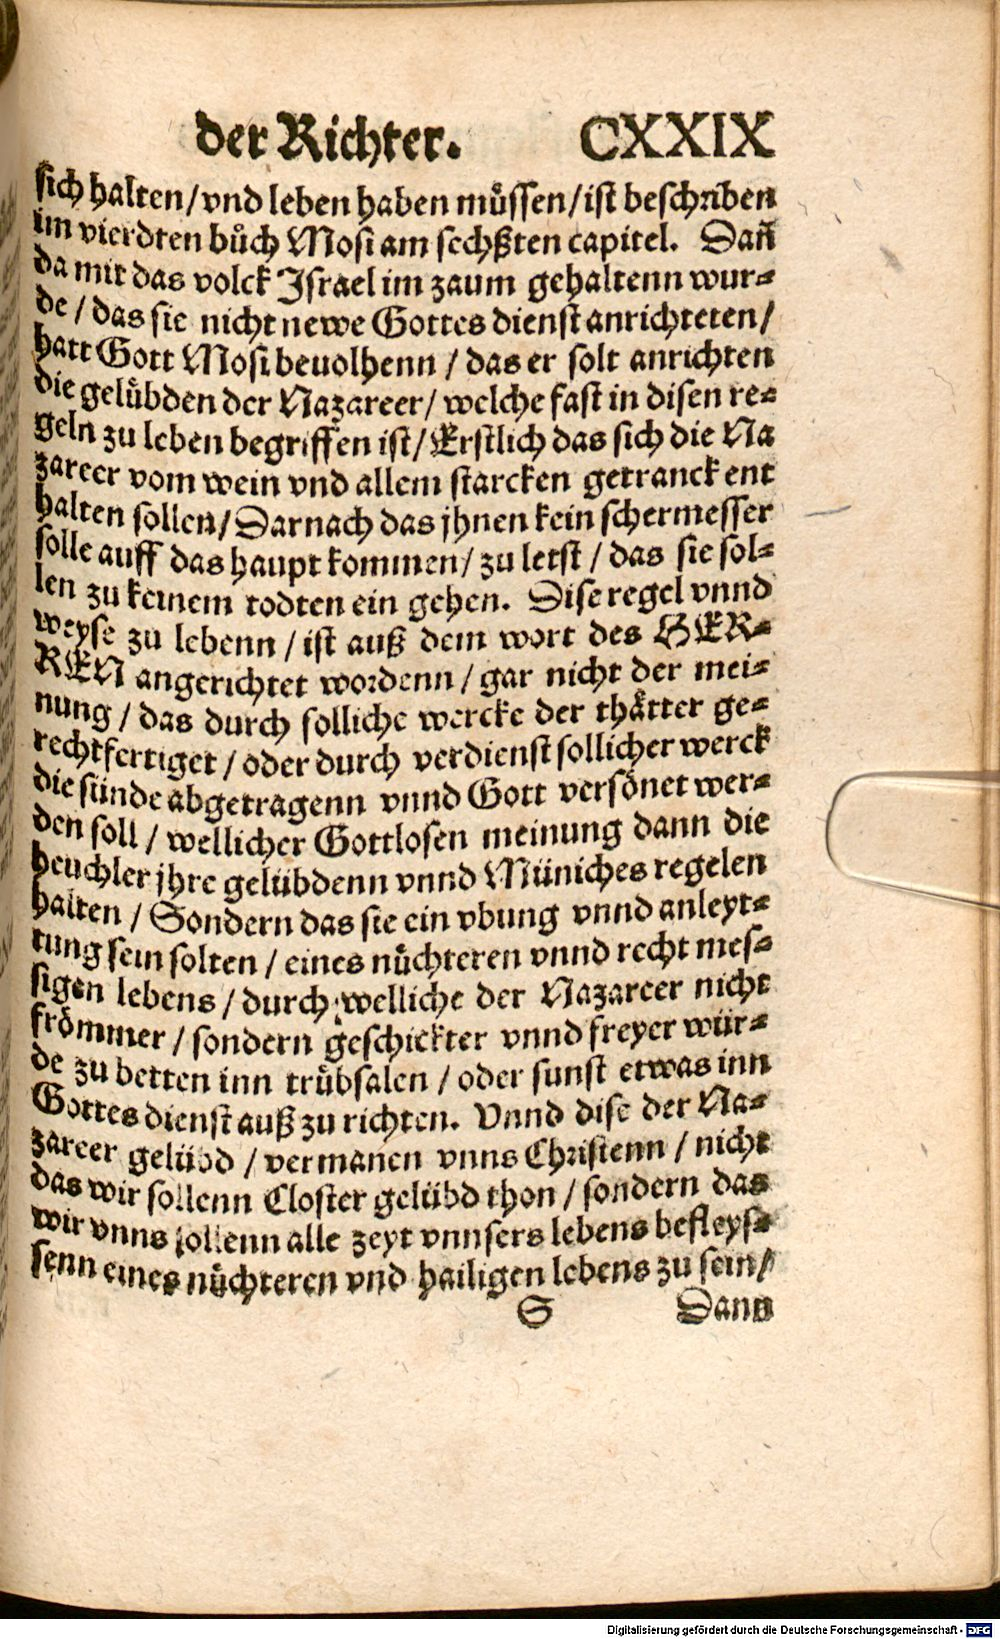 der Richter. CXXIX
sich halten / vnd leben haben muͤssen / ist beschriben
im vierdten buͤch Mosi am sechßten capitel. Dañ
da mit das volck Israel im zaum gehaltenn wur⸗
de / das sie nicht newe Gottes dienst anrichteten /
hatt Gott Mosi beuolhenn / das er solt anrichten
die geluͤbden der Nazareer / welche fast in disen re⸗
geln zu leben begriffen ist / Erstlich das sich die Na
zareer vom wein vnd allem starcken getranck ent
halten sollen / Darnach das jhnen kein schermesser
solle auff das haupt kommen / zu letst / das sie sol⸗
len zu keinem todten ein gehen. Dise regel vnnd
weyse zu lebenn / ist auß dem wort des HER⸗
REN angerichtet wordenn / gar nicht der mei⸗
nung / das durch solliche wercke der thaͤtter ge⸗
rechtfertiget / oder durch verdienst sollicher werck
die sünde abgetragenn vnnd Gott versoͤnet wer⸗
den soll / wellicher Gottlosen meinung dann die
heuchler jhre gelübdenn vnnd Müniches regelen
halten / Sondern das sie ein vbung vnnd anleyt⸗
tung sein solten / eines nuͤchteren vnnd recht mes⸗
sigen lebens / durch welliche der Nazareer nicht
froͤmmer / sondern geschickter vnnd freyer wür⸗
de zu betten inn truͤbsalen / oder sunst etwas inn
Gottes dienst auß zu richten. Vnnd dise der Na⸗
zareer gelübd / vermanen vnns Christenn / nicht
das wir sollenn Closter gelübd thon / sondern das
wir vnns sollenn alle zeyt vnnsers lebens befleys⸗
senn eines nuͤchteren vnd hailigen lebens zu sein /
S Dann
Digitalisierung gefördert durch die Deutsche Forschungsgemeinschaft - DFG